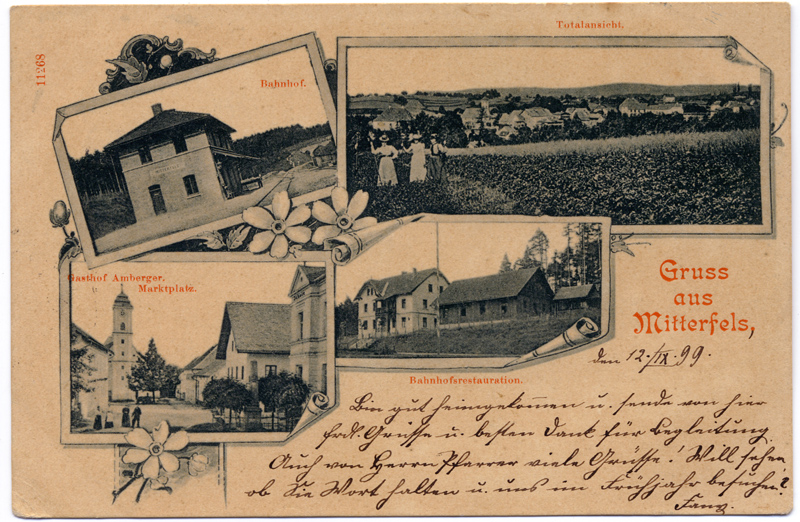 11268
Totalansicht.
Bahnhof.
Gasthof Amberger.
Marktplatz.
Bahnhofsrestauration.
Gruss
aus
Mitterfels,
den 12./IX. 99.
Bin gut heimgekommen u. sende von hier
frdl. Grüsse u. besten Dank für Begleitung.
Auch von Herrn Pfarrer viele Grüsse! Will sehen
ob Sie Wort halten u. uns im Frühjahr besuchen?